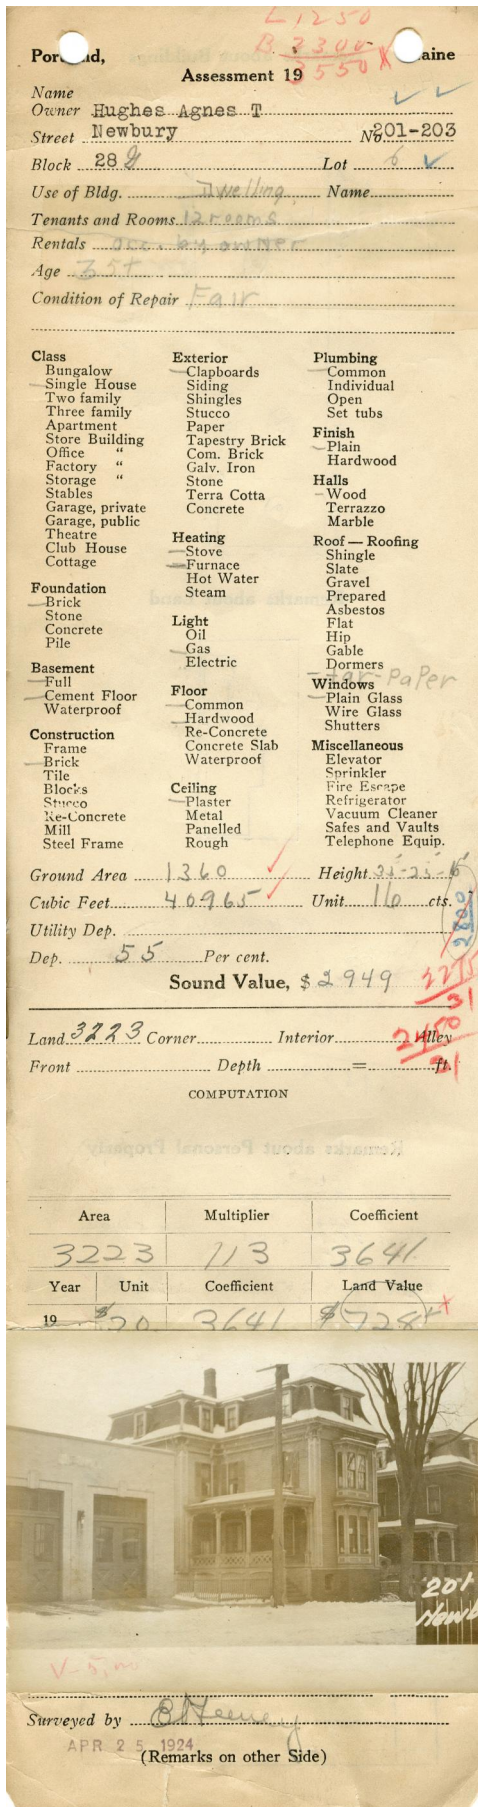 L 1250
B 2300
3550 X
Portland, Maine
Assessment 19
Name
Owner Hughes Agnes T
Street Newbury No 201-203
Block 28 Lot 6
Use of Bldg. Dwelling Name
Tenants and Rooms 12 rooms
Rentals occ. by owner
Age 35+
Condition of Repair Fair
Class
Bungalow
Single House
Two family
Three family
Apartment
Store Building
Office "
Factory "
Storage "
Stables
Garage, private
Garage, public
Theatre
Club House
Cottage
Foundation
Brick
Stone
Concrete
Pile
Basement
Full
Cement Floor
Waterproof
Construction
Frame
Brick
Tile
Blocks
Stucco
Re-Concrete
Mill
Steel Frame
Exterior
Clapboards
Siding
Shingles
Stucco
Paper
Tapestry Brick
Com. Brick
Galv. Iron
Stone
Terra Cotta
Concrete
Heating
Stove
Furnace
Hot Water
Steam
Light
Oil
Gas
Electric
Floor
Common
Hardwood
Re-Concrete
Concrete Slab
Waterproof
Ceiling
Plaster
Metal
Panelled
Rough
Plumbing
Common
Individual
Open
Set tubs
Finish
Plain
Hardwood
Halls
Wood
Terrazzo
Marble
Roof — Roofing
Shingle
Slate
Gravel
Prepared
Asbestos
Flat
Hip
Gable
Dormers
Tar-Paper
Windows
Plain Glass
Wire Glass
Shutters
Miscellaneous
Elevator
Sprinkler
Fire Escape
Refrigerator
Vacuum Cleaner
Safes and Vaults
Telephone Equip.
Ground Area 1360 Height 35-25-15
Cubic Feet 40965 Unit 16 cts.
2800
Utility Dep.
Dep. 55 Per cent.
Sound Value, $ 2949
2275
31
Land 3223 Corner Interior Alley
2450
31
Front Depth = ft.
COMPUTATION
Area Multiplier Coefficient
3223 113 3641
Year Unit Coefficient Land Value
19 $20 3641 $728
201
Newb
Surveyed by
APR 25 1924
(Remarks on other Side)